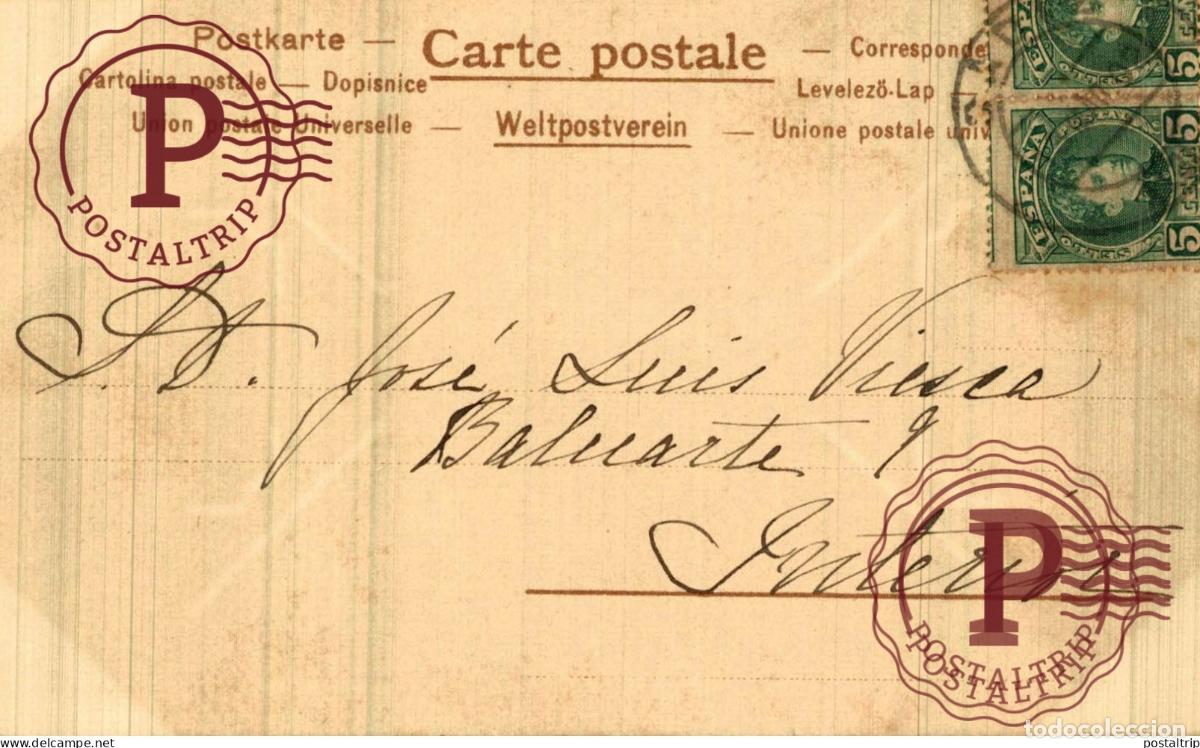 Postkarte — Carte postale — Corresponde
Cartolina postale — Dopisnice
Levelező-Lap —
Union postale Universelle — Weltpostverein — Unione postale univ
ESPAÑA
5
ESPAÑA
5
P
POSTALTRIP
S. D. José Luis Viesca
Baluarte 9
Interior
P
POSTALTRIP
POSTALTRIP
todocoleccion
www.delcampe.net
postaltrip